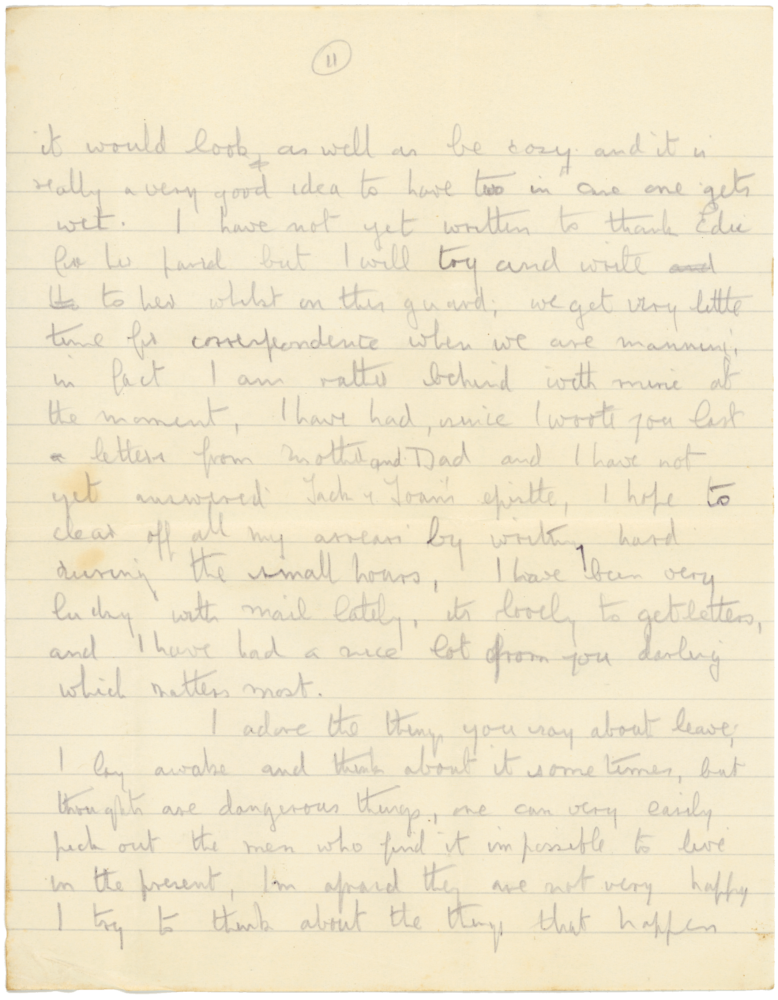 11
it would look, as well as be cosy and it is
really a very good idea to have two in one gets
wet. I have not yet written to thank Edie
for her parcel but I will try and write and
to her whilst on this guard; we get very little
time for correspondence when we are manning,
in fact I am rather behind with mine at
the moment, I have had, since I wrote you last
letters from Mother and Dad and I have not
yet answered Jack & Joan's epistle, I hope to
clear off all my arrears by writing hard
during the small hours, I have been very
lucky with mail lately, its lovely to get letters,
and I have had a nice lot from you darling
which matters most.
I adore the things you say about leave,
I lay awake and think about it sometimes, but
thoughts are dangerous things, one can very easily
pick out the men who find it impossible to live
in the present, I'm afraid they are not very happy
I try to think about the things that happen